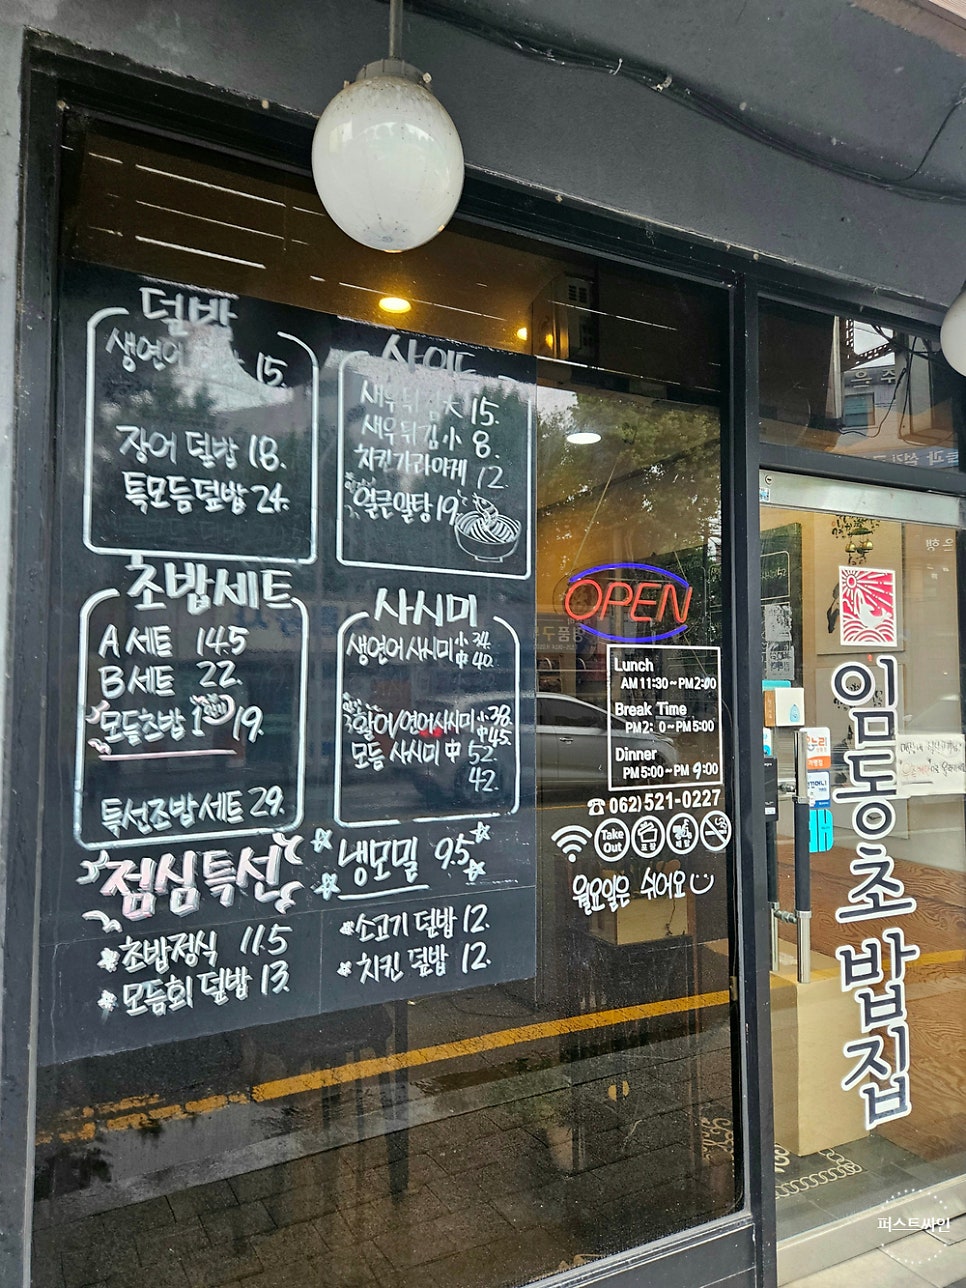 덮밥
생연어 덮밥 15.
장어 덮밥 18.
특모듬덮밥 24.
사이드
새우튀김大 15.
새우튀김小 8.
치킨가라아게 12.
얼큰알탕 19.
초밥세트
A세트 14.5
B세트 22.
모듬초밥 1 19.
특선초밥세트 29.
사시미
생연어 사시미 小 34.
中 40.
활어/연어사시미 小 38.
中 45.
모듬 사시미 中 52.
42.
점심특선
냉모밀 9.5
초밥정식 11.5
모듬회 덮밥 13.
소고기 덮밥 12.
치킨 덮밥 12.
OPEN
Lunch
AM 11:30 ~ PM 2:00
Break Time
PM 2: 0 ~ PM 5:00
Dinner
PM 5:00 ~ PM 9:00
☎ 062) 521-0227
Take Out
포장
배달
월요일은 쉬어요
임동초밥집
퍼스트싸인